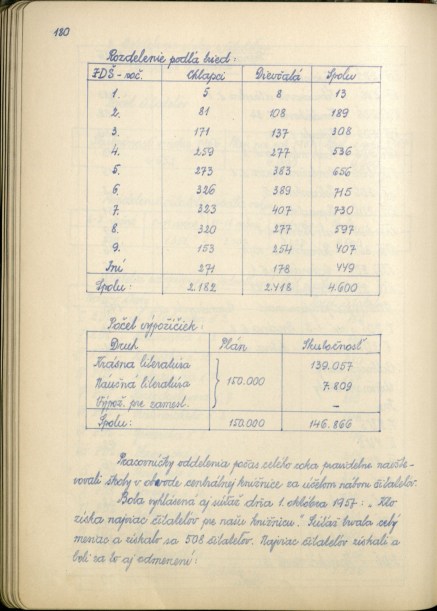 180
Rozdelenie podľa tried:
JDŠ - roč. Chlapci Dievčatá Spolu
1. 5 8 13
2. 81 108 189
3. 171 137 308
4. 259 277 536
5. 273 383 656
6. 326 389 715
7. 323 407 730
8. 320 277 597
9. 153 254 407
Iní 271 178 449
Spolu: 2.182 2.418 4.600
Počet výpožičiek:
Druh Plán Skutočnosť
Krásna literatúra 139.057
Náučná literatúra 150.000 7.809
Výpož. pre zamest. -
Spolu: 150.000 146.866
Pracovníčky oddelenia počas celého roka pravidelne navšte-
vovali školy v obvode centrálnej knižnice za účelom náboru čitateľov.
Bola vyhlásená aj súťaž dňa 1. októbra 1957: „Kto
získa najviac čitateľov pre našu knižnicu." Súťaž trvala celý
mesiac a získalo sa 508 čitateľov. Najviac čitateľov získali a
boli za to aj odmenení: